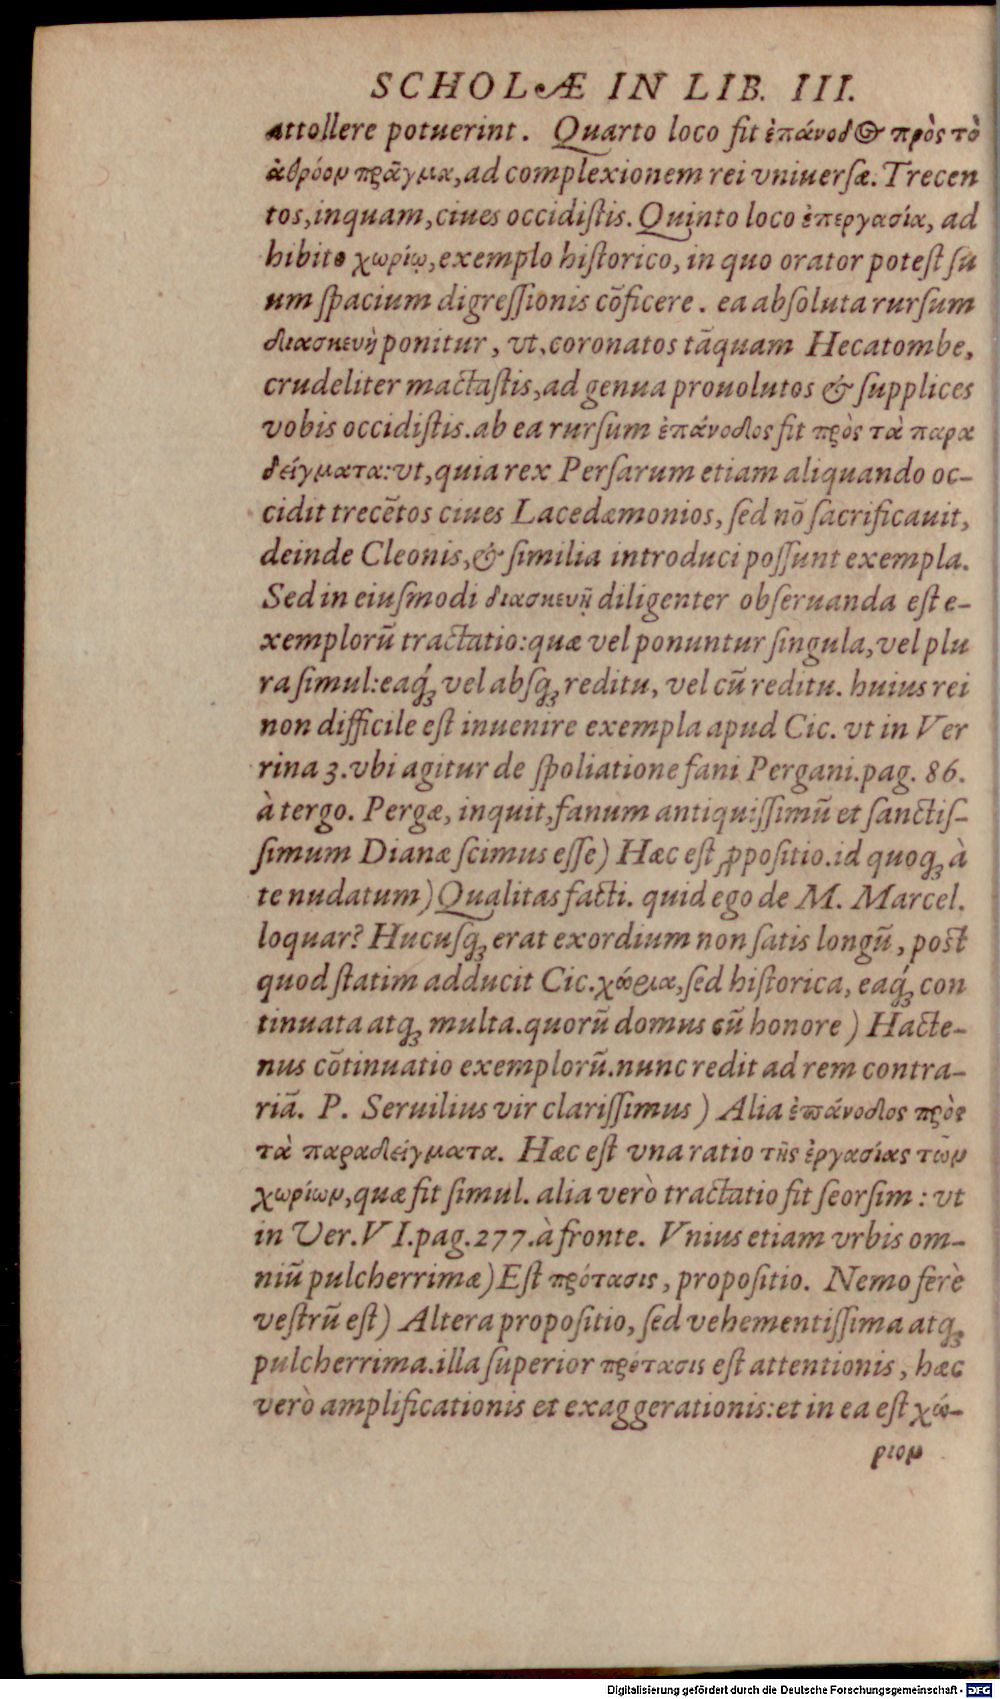 SCHOLÆ IN LIB. III.
attollere potuerint. Quarto loco fit ἐπάνοδος πρὸς τὸ
ἀθρόον πρᾶγμα, ad complexionem rei vniuersæ. Trecen
tos, inquam, ciues occidistis. Quinto loco ἐπεργασία, ad
hibito χωρίῳ, exemplo historico, in quo orator potest su
um spacium digressionis cõficere. ea absoluta rursum
διασκευὴ ponitur, vt, coronatos tãquam Hecatombe,
crudeliter mactastis, ad genua prouolutos & supplices
vobis occidistis. ab ea rursum ἐπάνοδος fit πρὸς τὰ παρα
δείγματα: vt, quia rex Persarum etiam aliquando oc-
cidit trecẽtos ciues Lacedæmonios, sed nõ sacrificauit,
deinde Cleonis, & similia introduci possunt exempla.
Sed in eiusmodi διασκευῇ diligenter obseruanda est e-
xemplorũ tractatio: quæ vel ponuntur singula, vel plu
ra simul: eaq́ꝫ vel absqꝫ reditu, vel cũ reditu. huius rei
non difficile est inuenire exempla apud Cic. vt in Ver
rina 3. vbi agitur de spoliatione fani Pergani. pag. 86.
à tergo. Pergæ, inquit, fanum antiquissimũ et sanctis-
simum Dianæ scimus esse) Hæc est ꝓpositio. id quoqꝫ à
te nudatum) Qualitas facti. quid ego de M. Marcel.
loquar? Hucusqꝫ erat exordium non satis longũ, post
quod statim adducit Cic. χώρια, sed historica, eaq́ꝫ con
tinuata atqꝫ multa. quorũ domus cũ honore) Hacte-
nus cõtinuatio exemplorũ. nunc redit ad rem contra-
riã. P. Seruilius vir clarissimus) Alia ἐπάνοδος πρὸς
τὰ παραδείγματα. Hæc est vna ratio τῆς ἐργασίας τῶν
χωρίων, quæ fit simul. alia verò tractatio fit seorsim: vt
in Ver. VI. pag. 277. à fronte. Vnius etiam vrbis om-
niũ pulcherrimæ) Est πρότασις, propositio. Nemo ferè
vestrũ est) Altera propositio, sed vehementissima atqꝫ
pulcherrima. illa superior πρότασις est attentionis, hæc
verò amplificationis et exaggerationis: et in ea est χώ-
ριον
Digitalisierung gefördert durch die Deutsche Forschungsgemeinschaft - DFG